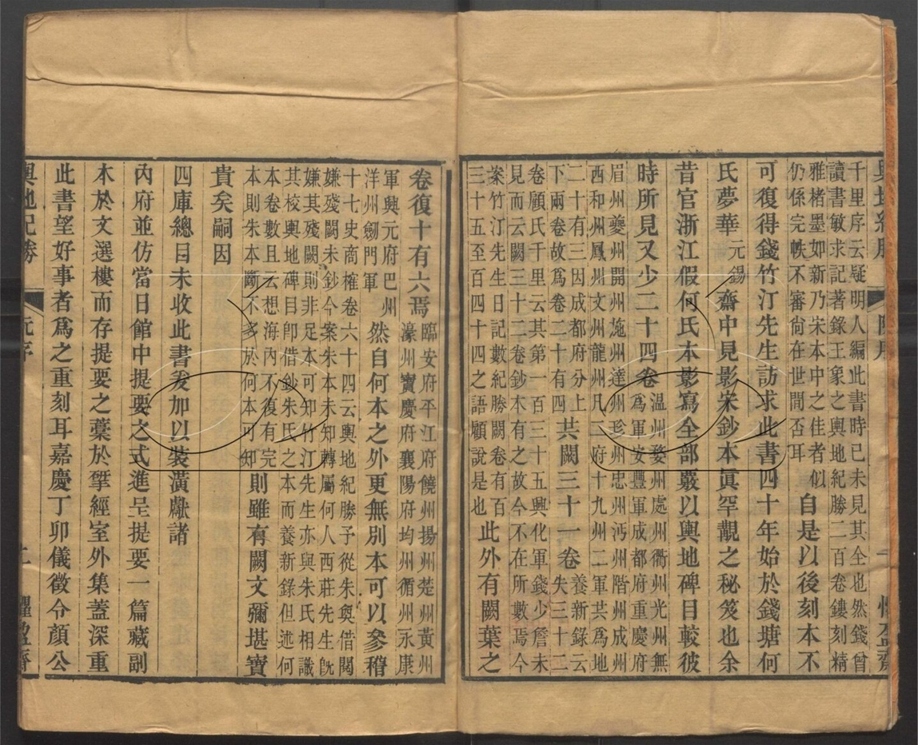 千里序云疑明人編此書時已未見其全也然錢曾
讀書敏求記著錄王象之輿地紀勝二百卷鏤刻精
雅楮墨如新乃宋本中之佳者似
仍係完帙不審尚在世間否耳
自是以後刻本不
可復得錢竹汀先生訪求此書四十年始於錢塘何
氏夢華
元錫
齋中見影宋鈔本眞罕覯之秘笈也余
昔官浙江假何氏本影寫全部嚴以輿地碑目較彼
時所見又少二十四卷
溫州婺州處州衢州光州無
爲軍安豐軍成都府重慶府
眉州夔州開州施州達州珍州忠州沔州階州成州
西和州鳳州文州龍州凡三府十九州二軍共爲地
二十有三因成都府分上
下兩卷故爲卷二十有四
共闕三十一卷
養新錄云
失三十二
卷顧氏千里云其第一百三十五興化軍錢少詹未
見而云闕三十二卷鈔本有之故今不在所數焉今
案竹汀先生日記數紀勝闕卷有百
三十五至百四十四之語願說是也
此外有闕葉之
卷復十有六焉
臨安府平江府饒州揚州楚州黃州
濠州寶慶府襄陽府均州循州永康
軍興元府巴州
洋州劒門軍
然自何本之外更無別本可以參稽
十七史商榷卷六十四云輿地紀勝予從朱奐借閱
嫌殘闕未鈔今案朱本未知轉屬何人西莊先生旣
嫌其殘闕則非足本可知竹汀先生亦與朱氏相識
其校輿地碑目卽借鈔朱氏之本而養新錄但述何
本卷數且云想海內不復有完
本則朱本斷不多於何本可知
則雖有闕文彌堪寶
貴矣嗣因
四庫總目未收此書爰加以裝潢獻諸
內府並仿當日館中提要之式進呈提要一篇藏副
本於文選樓而存提要之藁於揅經室外集蓋深重
此書望好事者爲之重刻耳嘉慶丁卯儀徵令顏公
輿地記勝
阮序
二
懼盈齋